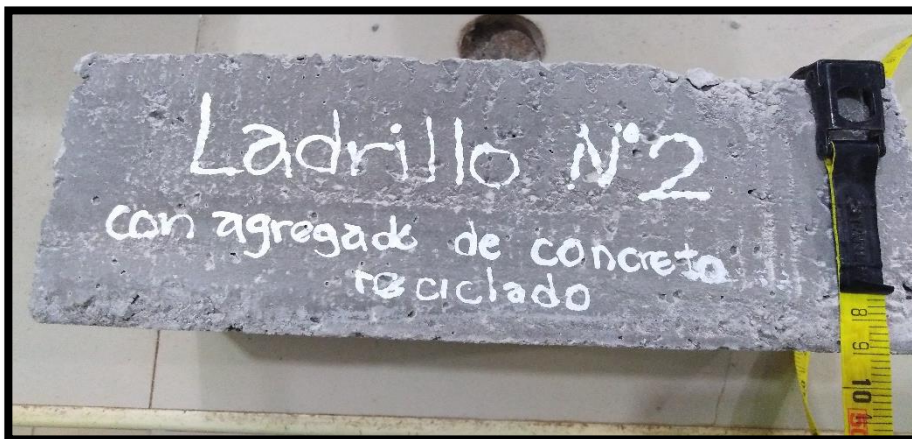 Ladrillo N°2
con agregado de concreto
reciclado
8
9
10